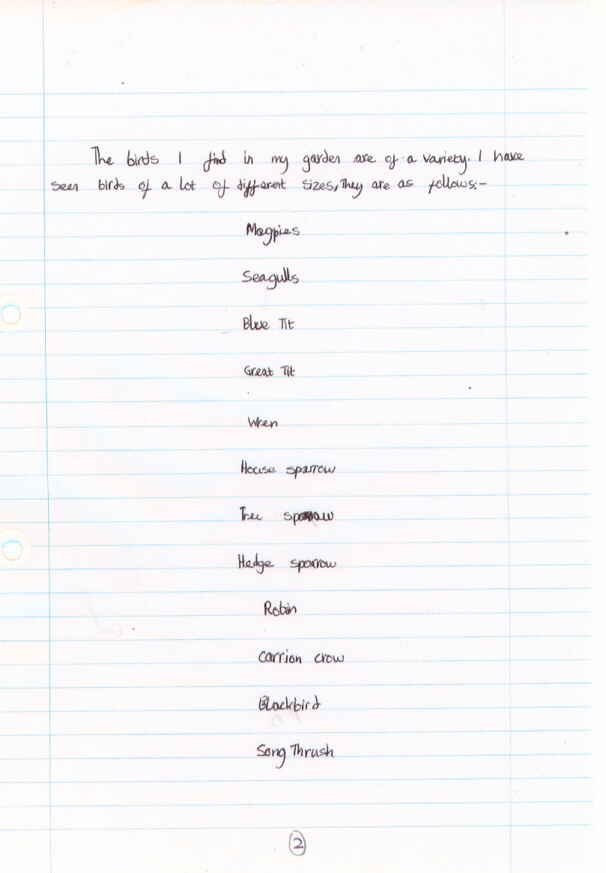 The birds I find in my garden are of a variety. I have
seen birds of a lot of different sizes, They are as follows:-
Magpies
Seagulls
Blue Tit
Great Tit
Wren
House sparrow
Tree sparrow
Hedge sparrow
Robin
Carrion crow
Blackbird
Song Thrush
2